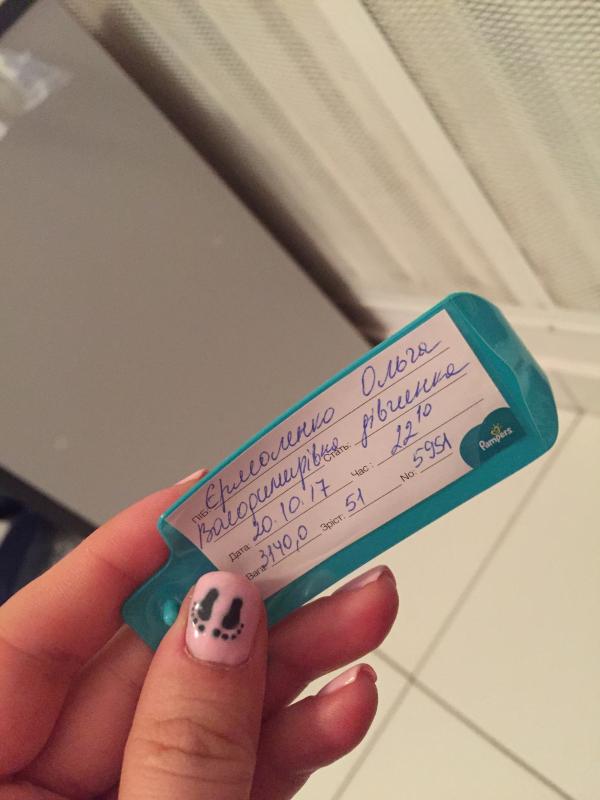 ПІБ Єрмоленко Ольга
Володимирівна Стать: дівчинка
Дата: 20.10.17 Час: 22 10
Вага: 3140,0 Зріст: 51 No: 5951
Pampers